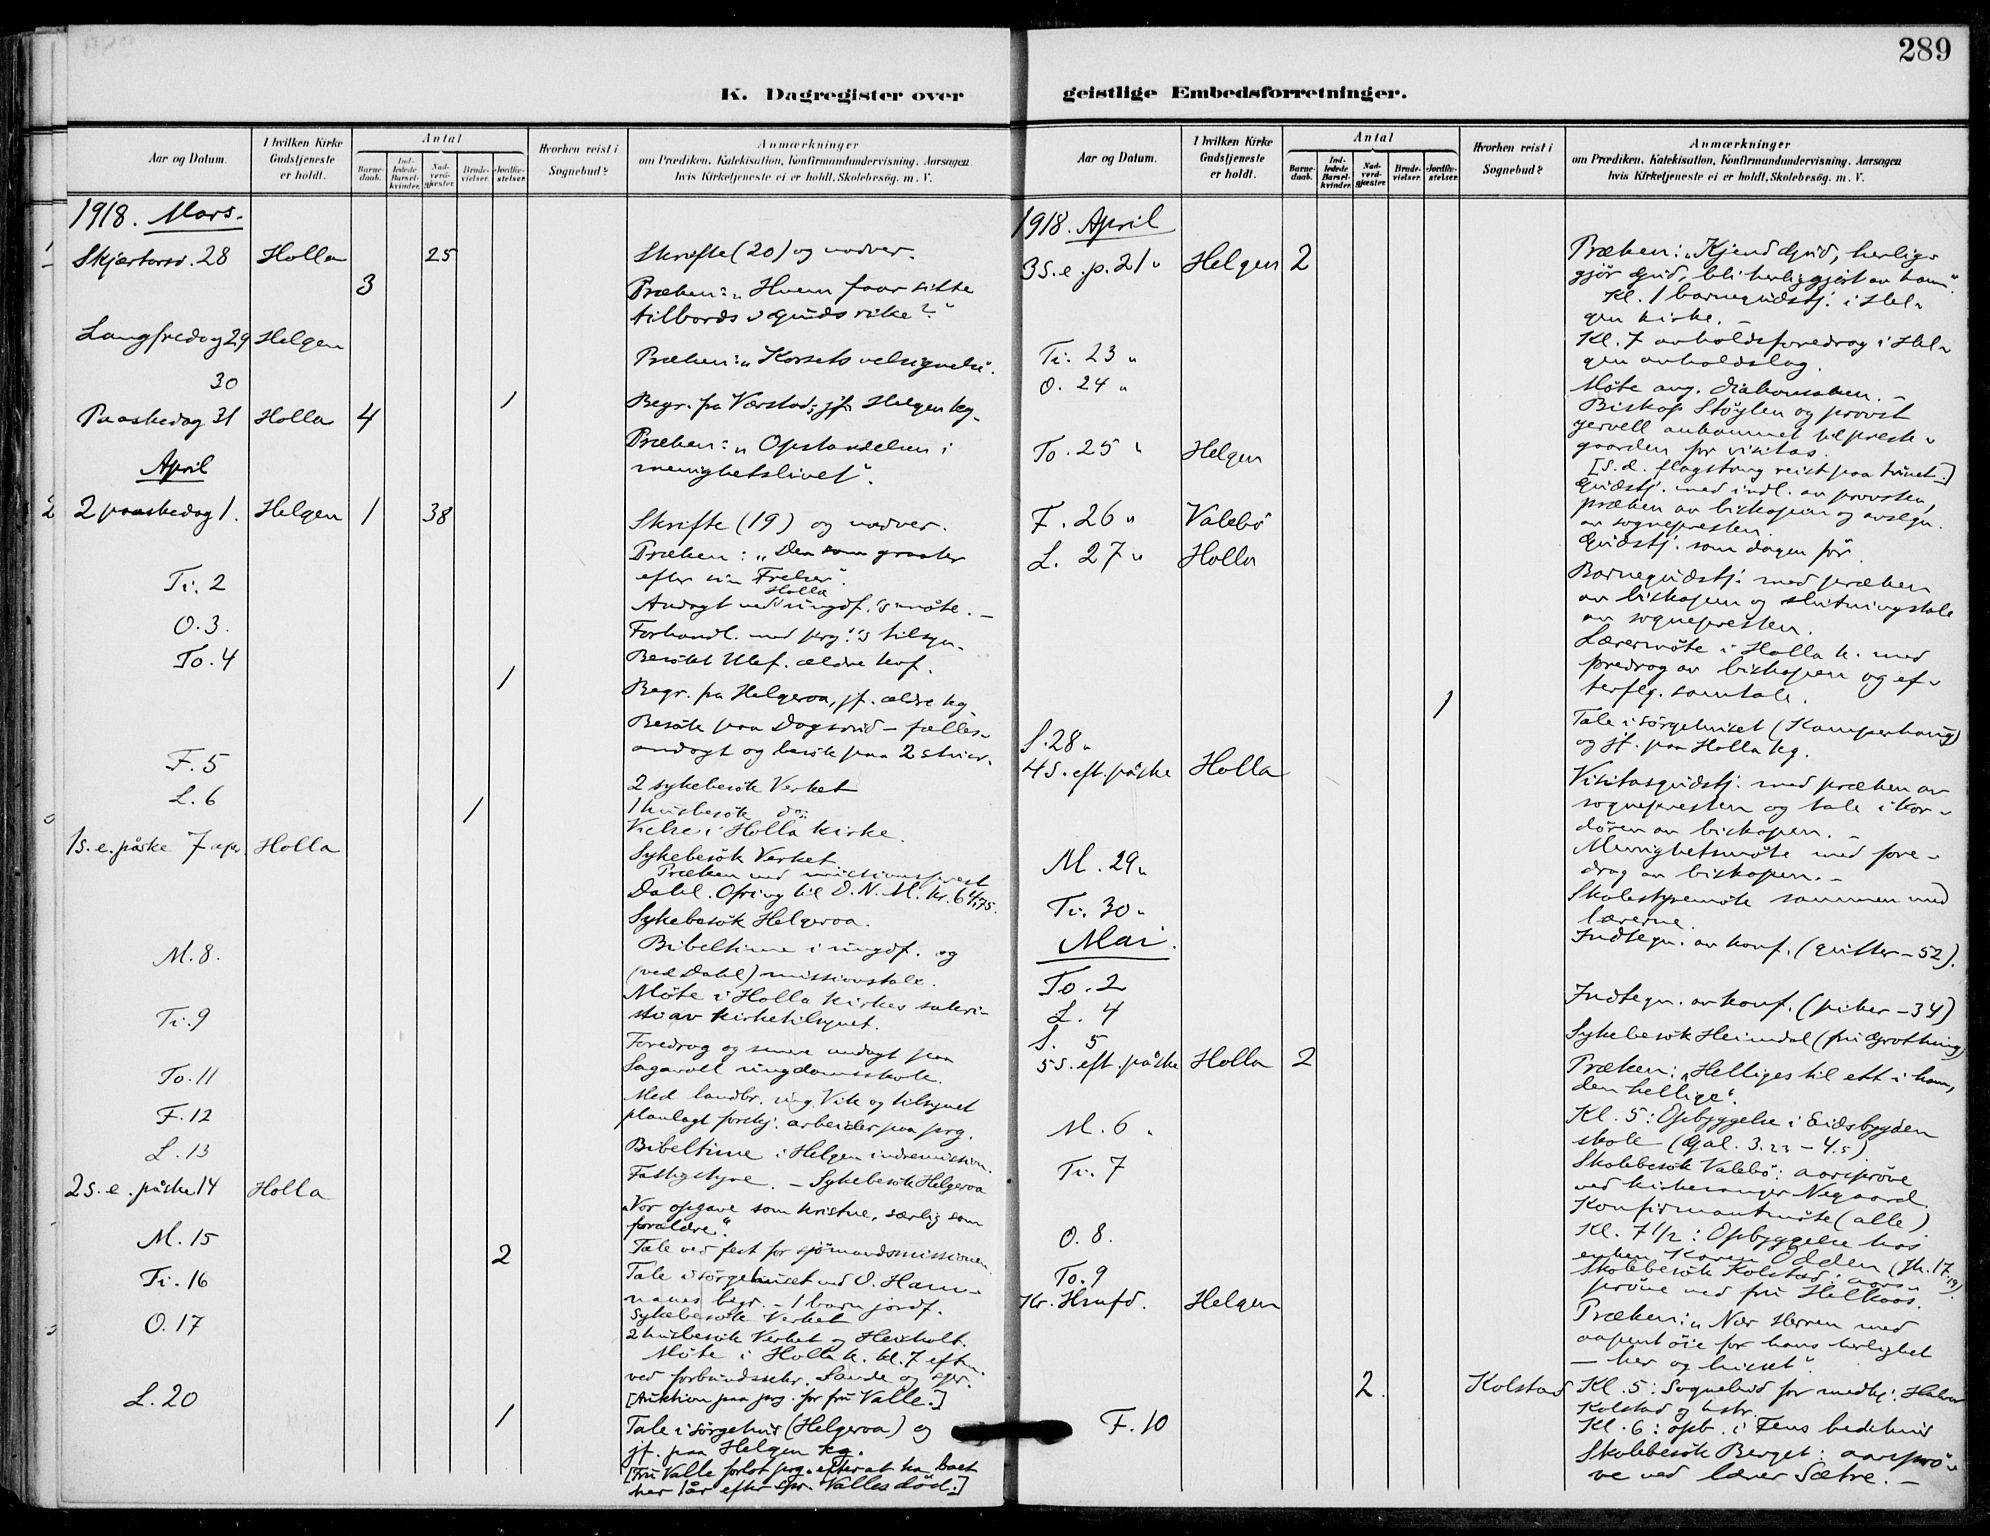 289
K. Dagregister over
Aar og Datum.
I hvilken Kirke Gudstjeneste er holdt.
Antal
Barnedaab.
Indledede Barselkvinder.
Nadverdgjester.
Brudevielser.
Jordfæstelser.
Hvorhen reist i Sognebud?
Anmærkninger
om Prædiken, Katekisation, Konfirmandundervisning, Aarsagen
hvis Kirketjeneste ei er holdt, Skolebesög. m. V.
1918. Mars.
Skjærtorsd. 28 Holla 25 Skrifte (20) og nadver.
3 Præken: „Hvem faar sitte
tilbords i Guds rike?"
Langfredag 29 Helgen
Præken: „Korsets velsignelse".
30 1 Begr. fra Værstad; jf. Helgen kg.
Paaskedag 31 Holla 4
Præken: „Opstandelsen i
menighetslivet".
April
2 paaskedag 1. Helgen 1 38 Skrifte (19) og nadver.
Præken: „Den som graater
efter sin Frelser".
Ti. 2 Andagt ved Holla ungdf.'s møte. –
O. 3. Forhandl. med prg.'s tilsyn.
To. 4 Besökt Ulef. ældre konf.
1 Begr. fra Helgeroa, jf. ældre kg.
Besøk paa Dagsrud – fælles-
andagt og besøk paa 2 stuer.
F. 5 2 sykebesök Verket
L. 6 1 husbesök do.
1 Vielse i Holla kirke.
1 s. e. påske 7 apr. Holla Sykebesök Verket
Præken ved missionsprest
Dahl. Ofring til D.N.M. kr. 64,75.
Sykebesök Helgeroa.
M. 8. Bibeltime i ungdf. og
(ved Dahl) missionstale.
Ti. 9 Möte i Holla kirkes sakri-
sti av kirketilsynet.
Foredrag og senere andagt paa
To. 11 Sagavoll ungdomsskole.
F. 12 Med landbr. ing. Vik og tilsynet
planlagt forskj. arbeider paa prg.
L. 13 Bibeltime i Helgen indremission.
2 s. e. påske 14 Holla Fattigstyre. – Sykebesök Helgeroa
„Vor opgave som kristne, særlig som
forældre".
M. 15 Tale ved fest for sjömandsmissionen.
Ti. 16 2 Tale i sörgehuset ved O. Ham-
nanes begr. – 1 barn jordf.
O. 17 Sykebesök Verket
2 husbesök Verket og Heisholt.
Möte i Holla k. kl. 7 eftm.
ved forbundssekr. Sande og spr.
L. 20 [Auktion paa prg. for fru Valle.]
1 Tale i sörgehus (Helgeroa) og
jf. paa Helgen kg.
[Fru Valle forlot prg. efter at ha boet
her 1 år efter spr. Valles död.]
geistlige Embedsforretninger.
Aar og Datum.
I hvilken Kirke Gudstjeneste er holdt.
Antal
Barnedaab.
Indledede Barselkvinder.
Nadverdgjester.
Brudevielser.
Jordfæstelser.
Hvorhen reist i Sognebud?
Anmærkninger
om Prædiken, Katekisation, Konfirmandundervisning, Aarsagen
hvis Kirketjeneste ei er holdt, Skolebesög. m. V.
1918. April
3 s. e. p. 21 „ Helgen 2 Præken: „Kjend Gud, herlig-
gjör Gud, bli herliggjort av ham".
Kl. 1 barnegudstj. i Hel-
gen kirke. –
Kl. 7 avholdsforedrag i Hel-
gen avholdslag.
Ti. 23 „ Möte ang. diakonsaken. –
O. 24 „ Biskop Støylen og provst
Gervell ankommet til preste-
gaarden for visitas.
[S. d. flagstang reist paa tunet.]
To. 25 „ Helgen Gudstj. med indl. av provsten,
præken av biskopen og avslgn.
av sognepresten.
F. 26 „ Valebö Gudstj. som dagen för.
L. 27 „ Holla Barnegudstj. med præken
av biskopen og slutningstale
av sognepresten.
Lærermöte i Holla k. med
foredrag av biskopen og ef-
terflg. samtale.
1 Tale i sörgehuset (Kamperhaug)
og jf. paa Holla kg.
S. 28 „
4 s. eft. påske Holla Visitasgudstj. med præken av
sognepresten og tale i kor-
dören av biskopen. –
Menighetsmöte med fore-
drag av biskopen. –
M. 29 „ Skolestyremöte sammen med
lærerne.
Ti. 30 „ Indtegn. av konf. (gutter – 52).
Mai.
To. 2 Indtegn. av konf. (piker – 34)
L. 4 Sykebesök Heimdal (fru Grothing)
S. 5
5 s. eft. påske Holla 2 Præken: „Helliges til ett i ham,
den hellige".
Kl. 5: Opbyggelse i Eidsbygden
skole (Gal. 3.23 – 4.5)
M. 6 „ Skolebesök Valebö: aarspröve
ved kirkesanger Negaard.
Ti. 7 Konfirmantmöte (alle)
Kl. 7 1/2: Opbyggelse hos
enken Karen Odden (Jh. 17.19).
O. 8. Skolebesök Kolstad: aars-
pröve ved fru Helkaas.
To. 9
Kr. Hmfd. Helgen Præken: „Nær Herren med
aapent öie for hans herlighet
– her og hisset".
2. Kolstad Kl. 5: Sognebud for medhj. Halvor
Kolstad og hstr.
Kl. 6: opb. i Fens bedehus
F. 10 Skolebesök Berget: aarsprö-
ve ved lærer Sætre. –